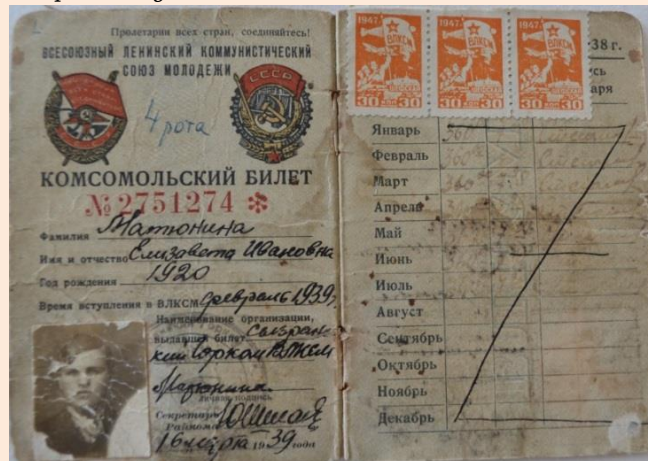 Пролетарии всех стран, соединяйтесь!
ВСЕСОЮЗНЫЙ ЛЕНИНСКИЙ КОММУНИСТИЧЕСКИЙ
СОЮЗ МОЛОДЕЖИ
СССР
4 рота
КОМСОМОЛЬСКИЙ БИЛЕТ
№ 2751274 *
Фамилия Матюнина
Имя и отчество Елизавета Ивановна
Год рождения 1920
Время вступления в ВЛКСМ февраль 1939
Наименование организации,
выдавшей билет Сызран
ский Горком ВЛКСМ
Матюнина
Личная подпись
Секретарь
Райкома
16 марта 1939 года
1947 ВЛКСМ 30 30
1947 ВЛКСМ 30 30
1947 ВЛКСМ 30 30
38 г.
Январь
Февраль
Март
Апрель
Май
Июнь
Июль
Август
Сентябрь
Октябрь
Ноябрь
Декабрь